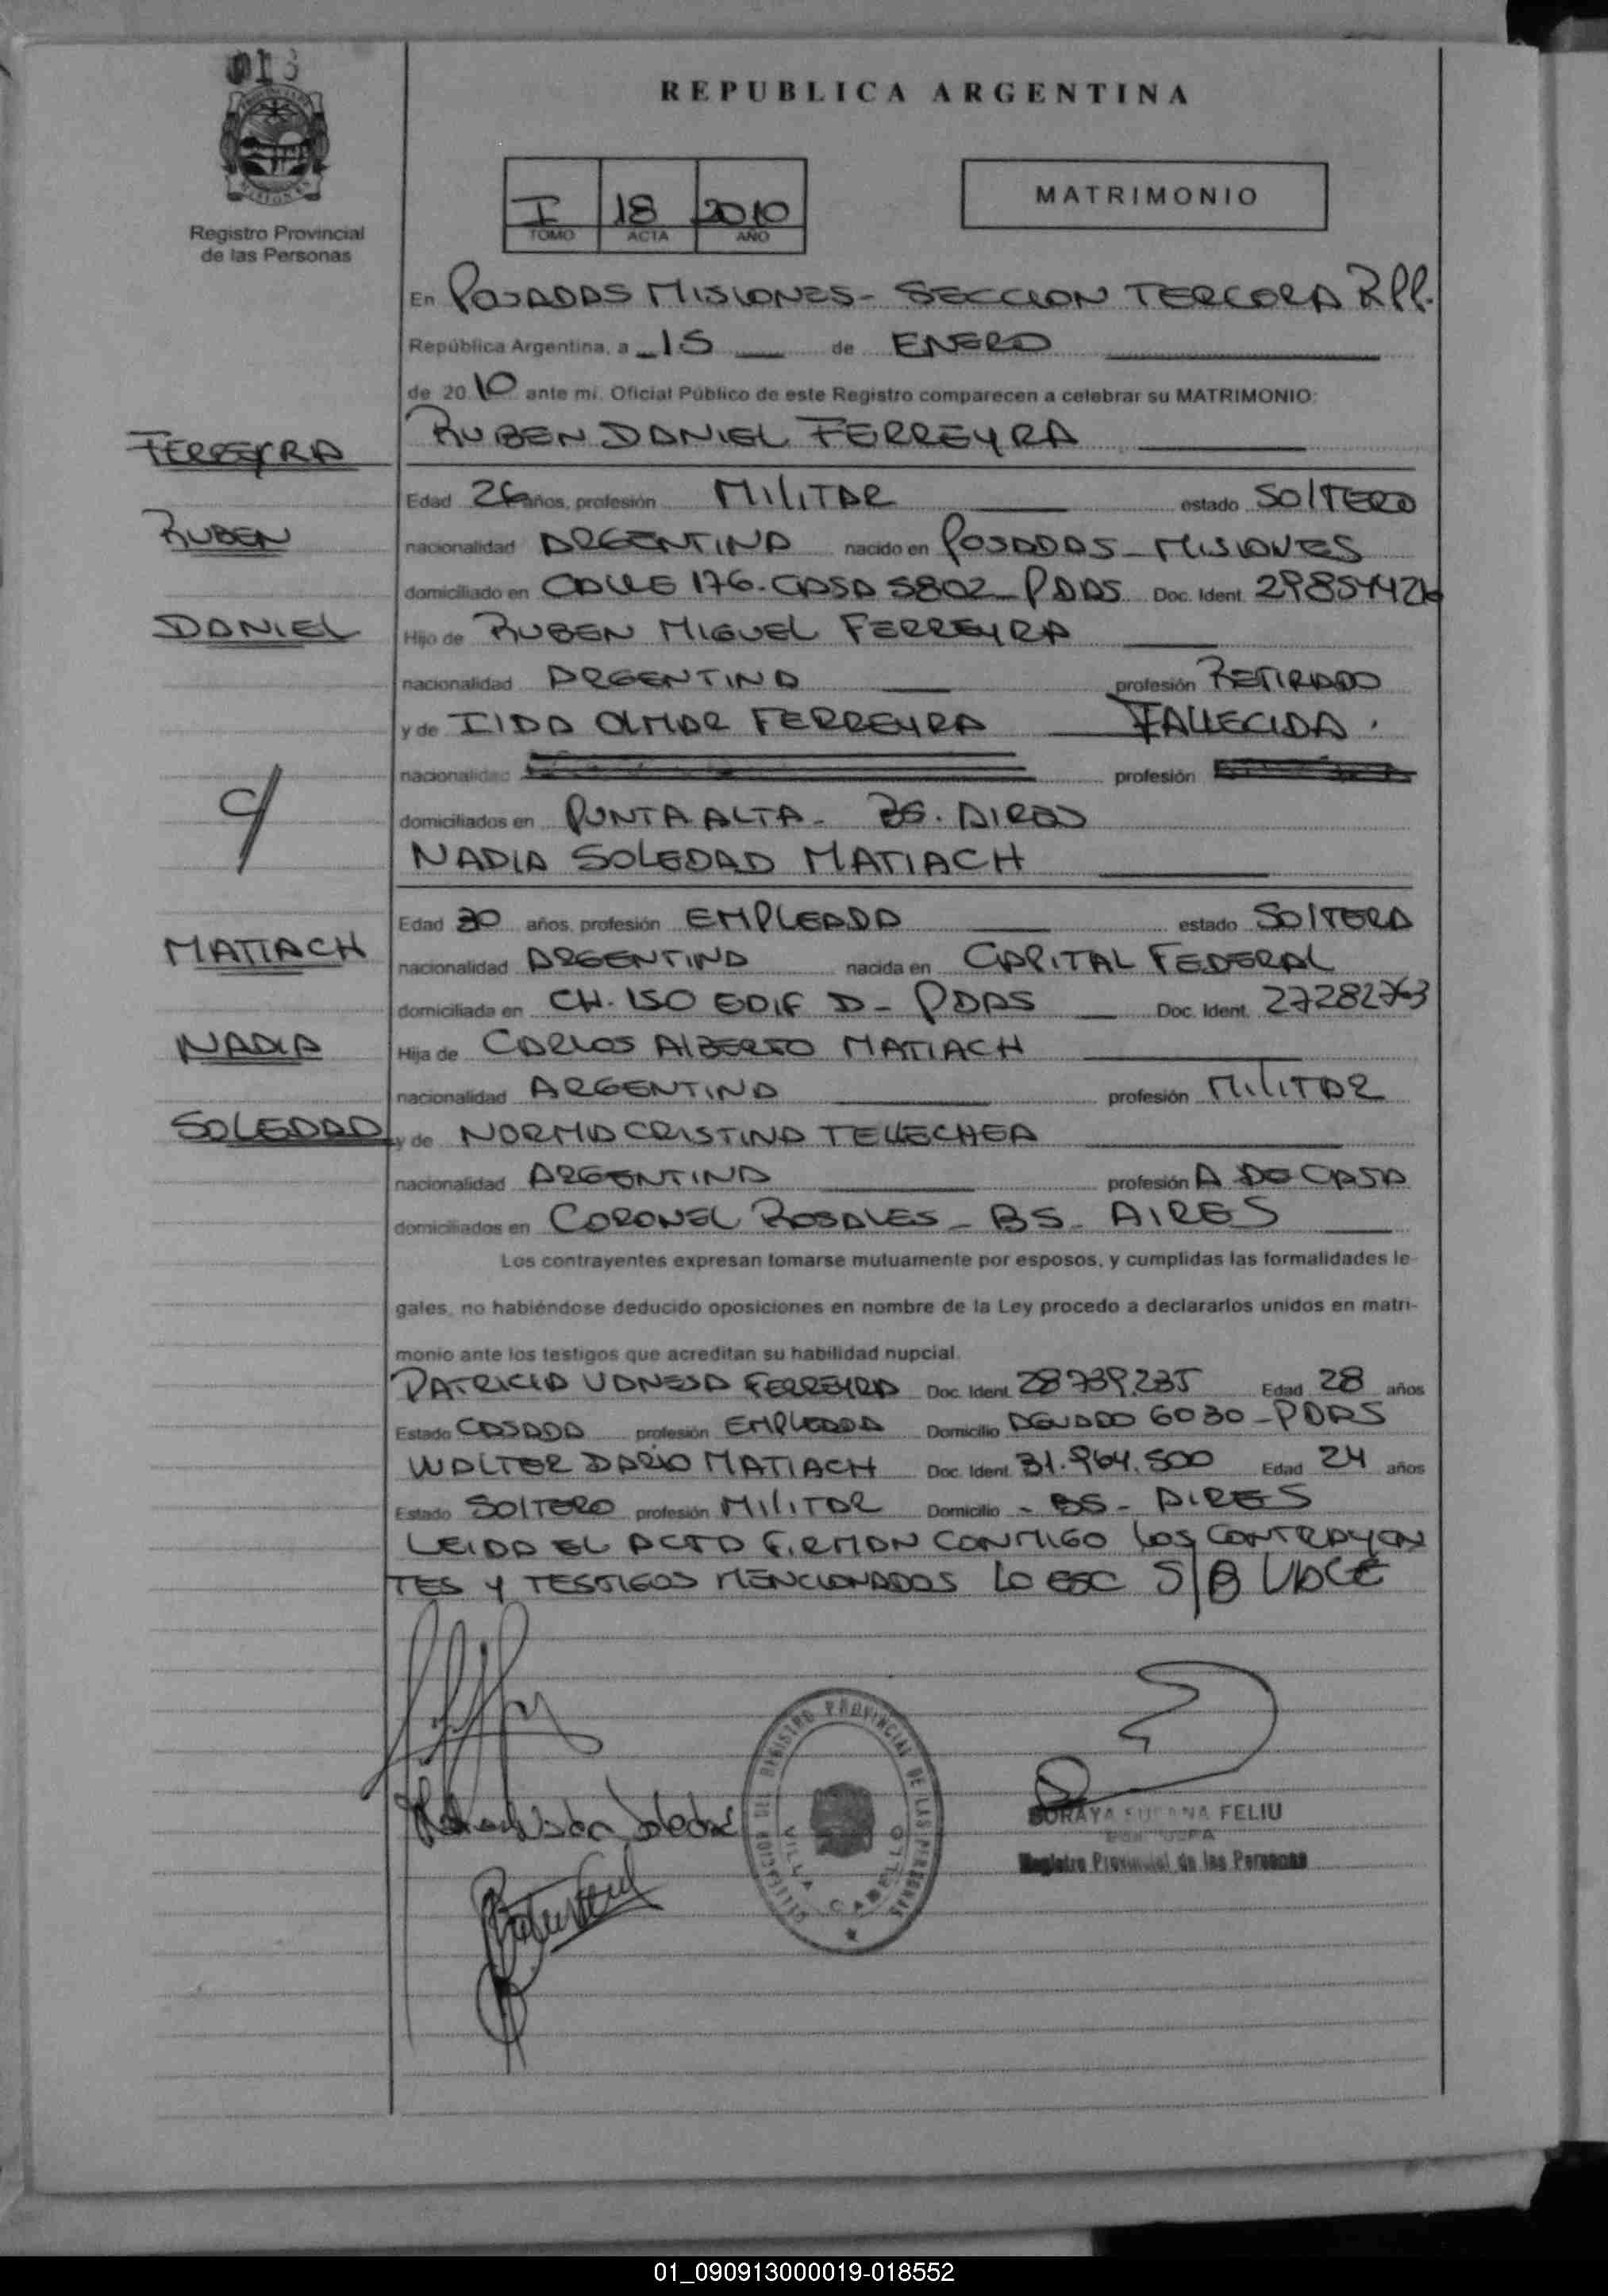 013
REPUBLICA ARGENTINA
I 18 2010
TOMO ACTA AÑO
MATRIMONIO
Registro Provincial
de las Personas
En POSADAS MISIONES - SECCION TERCERA RPP.
República Argentina, a 15 de ENERO
de 2010 ante mi, Oficial Público de este Registro comparecen a celebrar su MATRIMONIO:
RUBEN DANIEL FERREYRA
FERREYRA
RUBEN
DANIEL
Edad 26 años, profesión MILITAR estado SOLTERO
nacionalidad ARGENTINA nacido en POSADAS - MISIONES
domiciliado en CALLE 176. CASA 5802 - PDAS Doc. Ident.
Hijo de RUBEN MIGUEL FERREYRA
nacionalidad ARGENTINA profesión RETIRADO
y de ILDA OLMAR FERREYRA FALLECIDA.
nacionalidad profesión
domiciliados en PUNTA ALTA - BS. AIRES
c/
NADIA SOLEDAD MATIACH
MATIACH
NADIA
SOLEDAD
Edad 30 años, profesión EMPLEADA estado SOLTERA
nacionalidad ARGENTINA nacida en CAPITAL FEDERAL
domiciliada en CH. 150 EDIF D - PDAS Doc. Ident. 27282763
Hija de CARLOS ALBERTO MATIACH
nacionalidad ARGENTINA profesión MILITAR
y de NORMA CRISTINA TELLECHEA
nacionalidad ARGENTINA profesión A DE CASA
domiciliados en CORONEL ROSALES - BS - AIRES
Los contrayentes expresan tomarse mutuamente por esposos, y cumplidas las formalidades le-
gales, no habiéndose deducido oposiciones en nombre de la Ley procedo a declararlos unidos en matri-
monio ante los testigos que acreditan su habilidad nupcial.
PATRICIA VANESA FERREYRA Doc. Ident. 28739.235 Edad 28 años
Estado CASADA profesión EMPLEADA Domicilio 6030 - PDAS
WALTER DARIO MATIACH Doc. Ident. 31.964.500 Edad 24 años
Estado SOLTERO profesión MILITAR Domicilio - BS - AIRES
LEIDA EL ACTA FIRMAN CONMIGO LOS CONTRAYEN
TES Y TESTIGOS MENCIONADOS LO ESC S/B VALE
DEL REGISTRO PROVINCIAL DE LAS PERSONAS
VILLA CABELLO
SORAYA SUSANA FELIU
Registro Provincial de las Personas
01_090913000019-018552